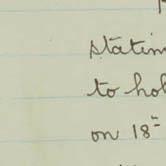 statin
to hol
on 18th